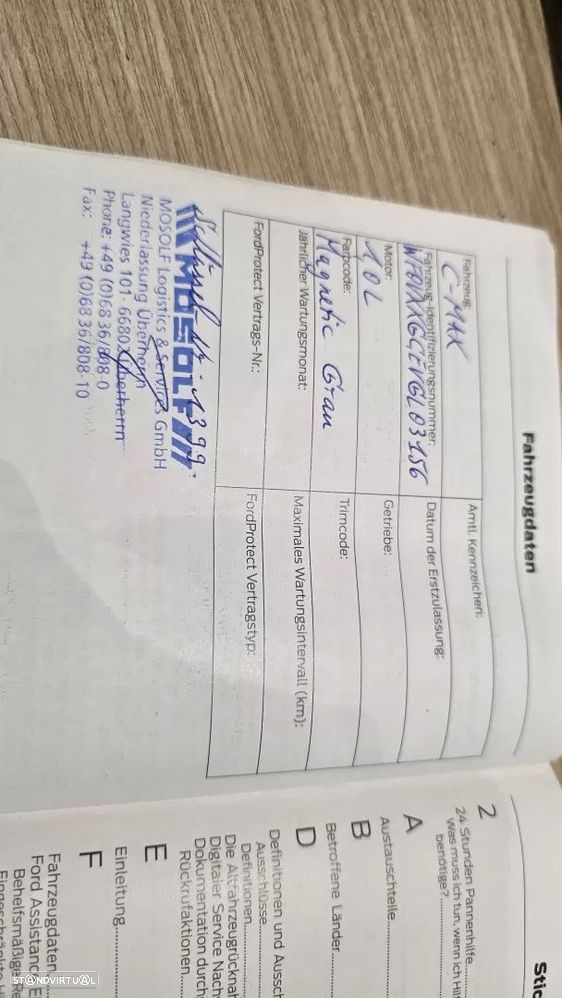 Fahrzeugdaten
Fahrzeug:
C-MAX
Amtl. Kennzeichen:
Fahrzeug-Identifizierungsnummer:
Datum der Erstzulassung:
Motor:
1,0 L
Getriebe:
Farbcode:
Magnetic Grau
Trimcode:
Jährlicher Wartungsmonat:
Maximales Wartungsintervall (km):
FordProtect Vertrags-Nr.:
FordProtect Vertragstyp:
MOSOLF
MOSOLF Logistics & Services GmbH
Niederlassung Überherrn
Langwies 101 · 66802 Überherrn
Phone: +49 (0)68 36/808-0
Fax: +49 (0)68 36/808-10
Stic
2
24 Stunden Pannenhilfe
Was muss ich tun, wenn ich Hil
benötige?
A
Austauschteile
B
Betroffene Länder
D
Definitionen und Aussch
Ausschlüsse
Definitionen
Die Altfahrzeugrücknah
Digitaler Service Nach
Dokumentation durch
Rückrufaktionen
E
Einleitung
F
Fahrzeugdaten
Ford Assistance E
Behelfsmäßige
ST@NDVIRTU@L